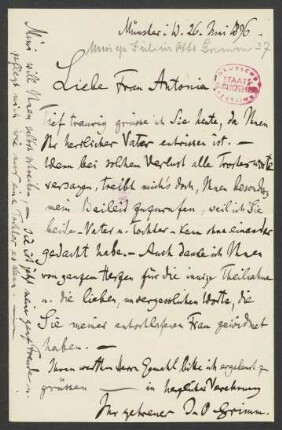 Münster i. W. 26. Juni 1896
Liebe Frau Antonia
Tief traurig grüsse ich Sie heute, da Ihnen
Ihr herrlicher Vater entrissen ist. —
Wenn bei solchem Verlust alle Trostesworte
versagen, treibt mich's doch, Ihnen besonders
mein Beileid zuzurufen, weil ich Sie
beide – Vater u. Tochter – kaum ohne einander
gedacht habe. – Auch danke ich Ihnen
von ganzem Herzen für die innige Theilnahme
u. die lieben, unvergesslichen Worte, die
Sie meiner entschlafenen Frau gewidmet
haben. —
Ihren werthen Herrn Gemahl bitte ich ergebenst zu
grüssen — in herzlicher Verehrung
Ihr getreuer Dr. O. Grimm.
Mimi will Ihnen selbst schreiben, – sie ist jetzt meine ganze Freude u.
pflegt mich wie nur eine Tochter es kann. —
STAATS